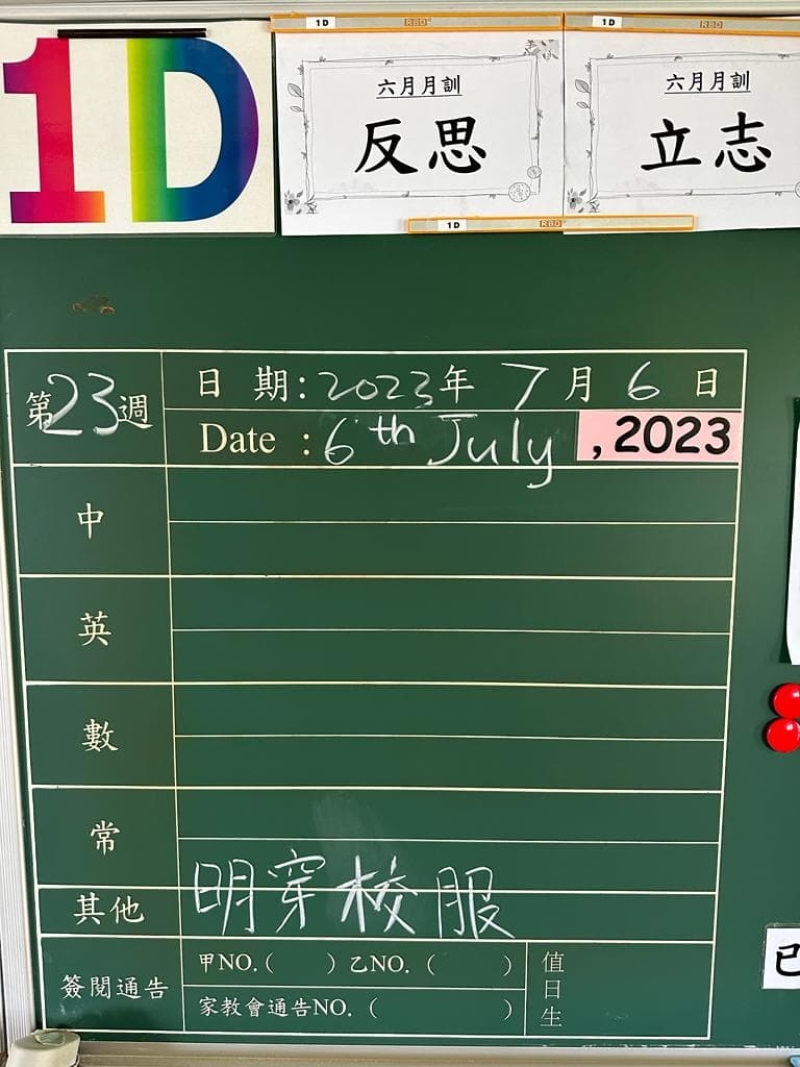 1D
1D RBD
1D RBD
六月月訓
反思
六月月訓
立志
1D RBD
第23週
日期:2023年7月6日
Date :6th July ,2023
中
英
數
常
其他 明穿校服
簽閱通告
甲NO.( ) 乙NO. ( )
家教會通告NO. ( )
值日生
已